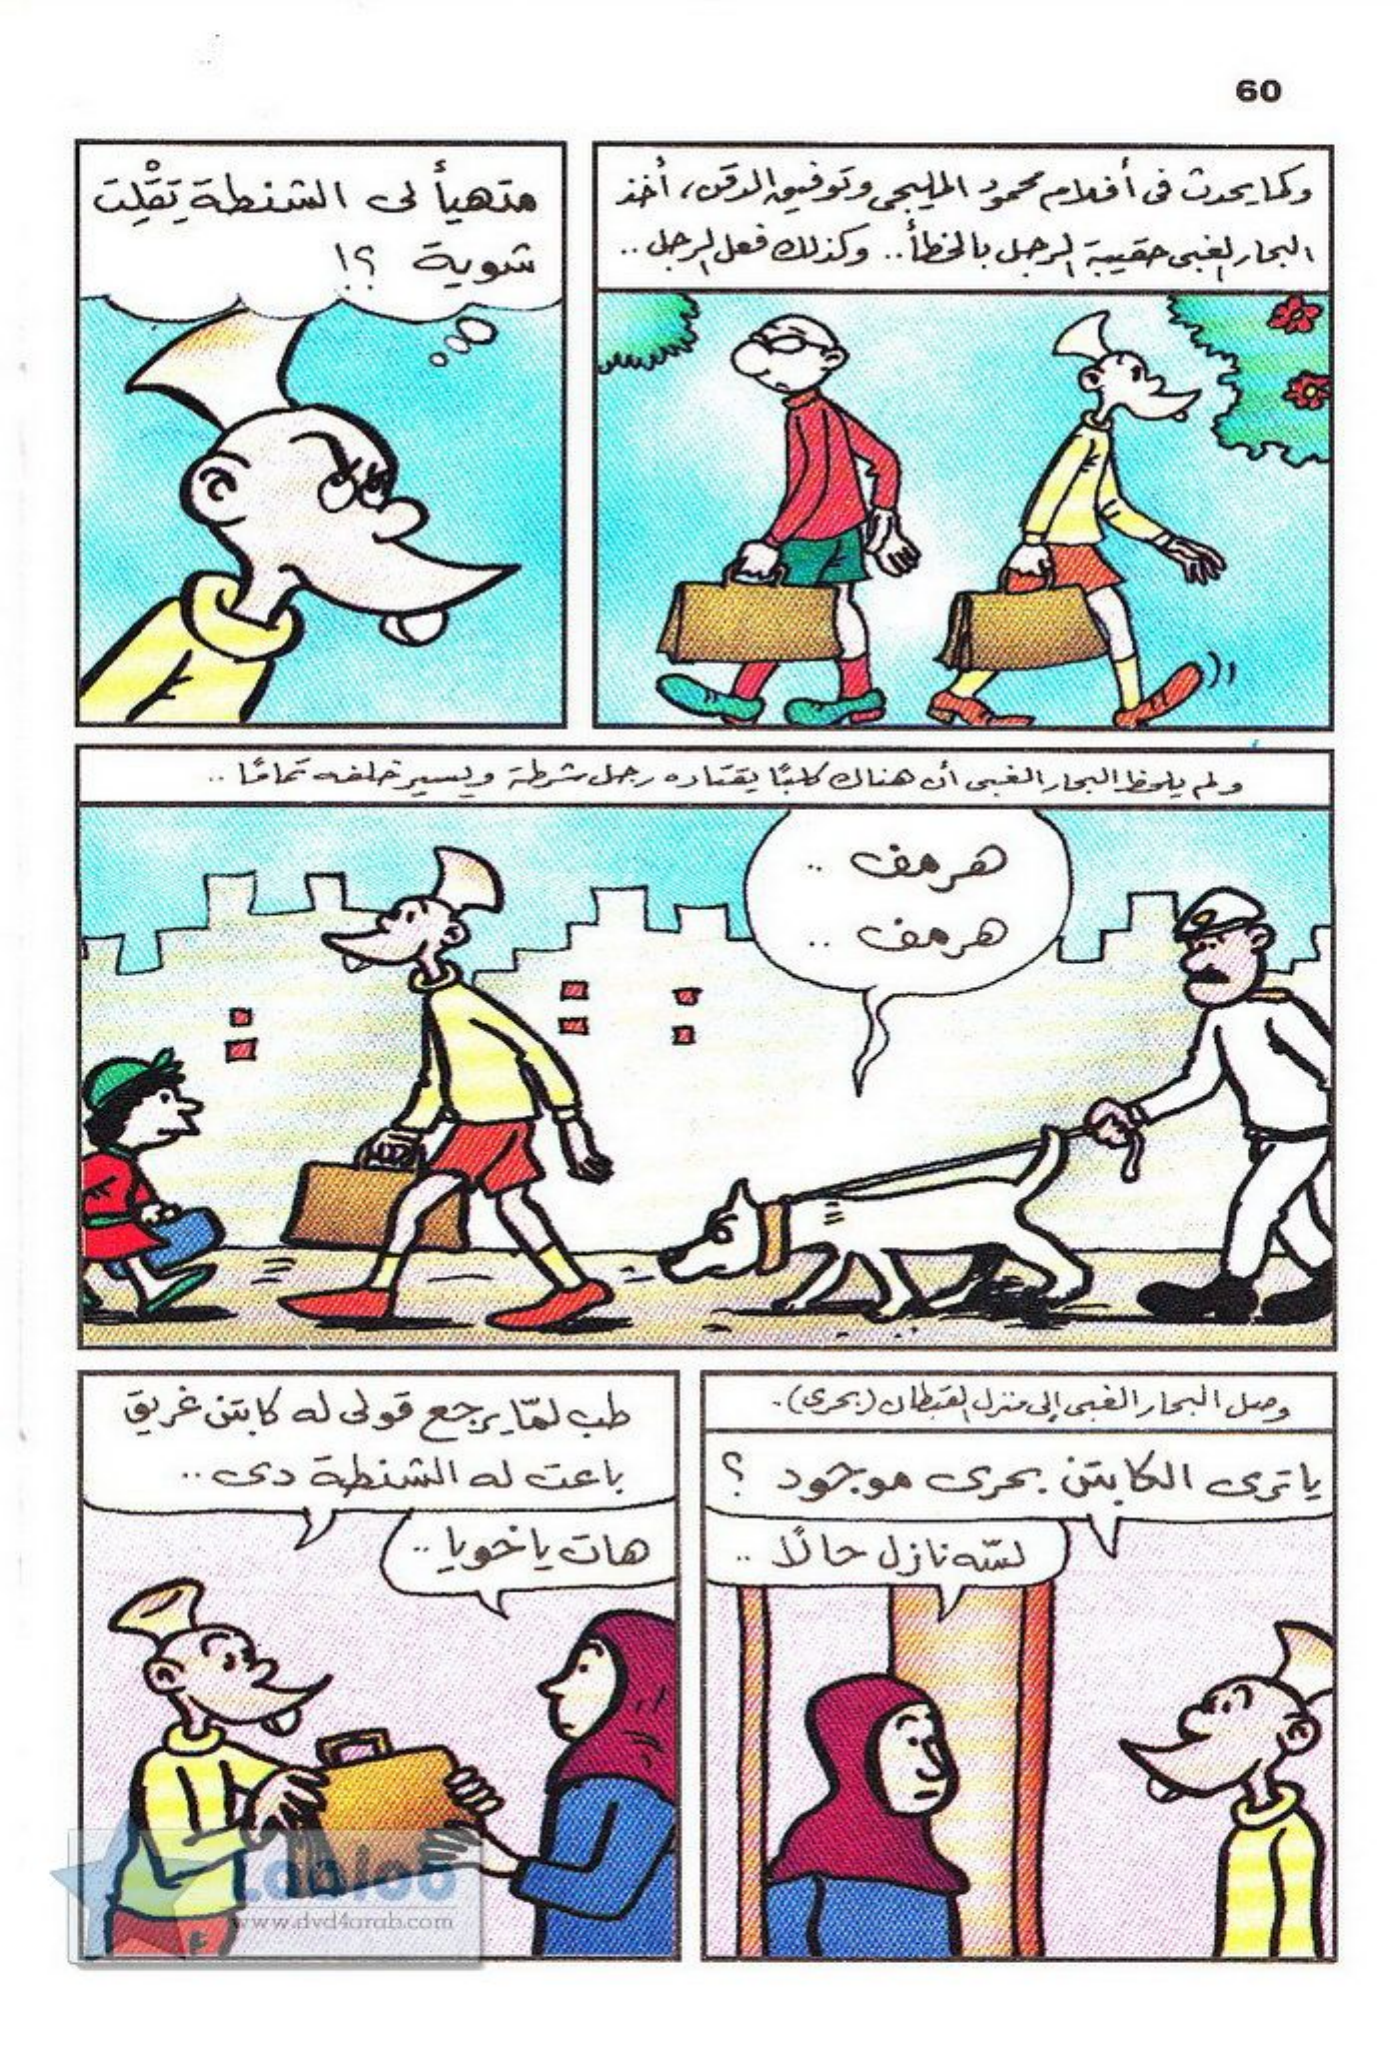 60
وكما يحدث فى أفلام محمود المليجى وتوفيق الدقن، أخذ
البحار الغبى حقيبة الرجل بالخطأ.. وكذلك فعل الرجل..
متهيأ لى الشنطة تِقْلِت
شوية ؟!
ولم يلحظ البحار الغبى أن هناك كلبًا يقتاده رجل شرطة ويسير خلفه تمامًا..
هرمف ..
هرمف ..
وصل البحار الغبى إلى منزل القبطان (بحرى).
ياترى الكابتن بحرى موجود ؟
لسّه نازل حالًا ..
طب لمّا يرجع قولى له كابتن غريق
باعت له الشنطة دى ..
هات ياخويا ..
Lablob
www.dvd4arab.com